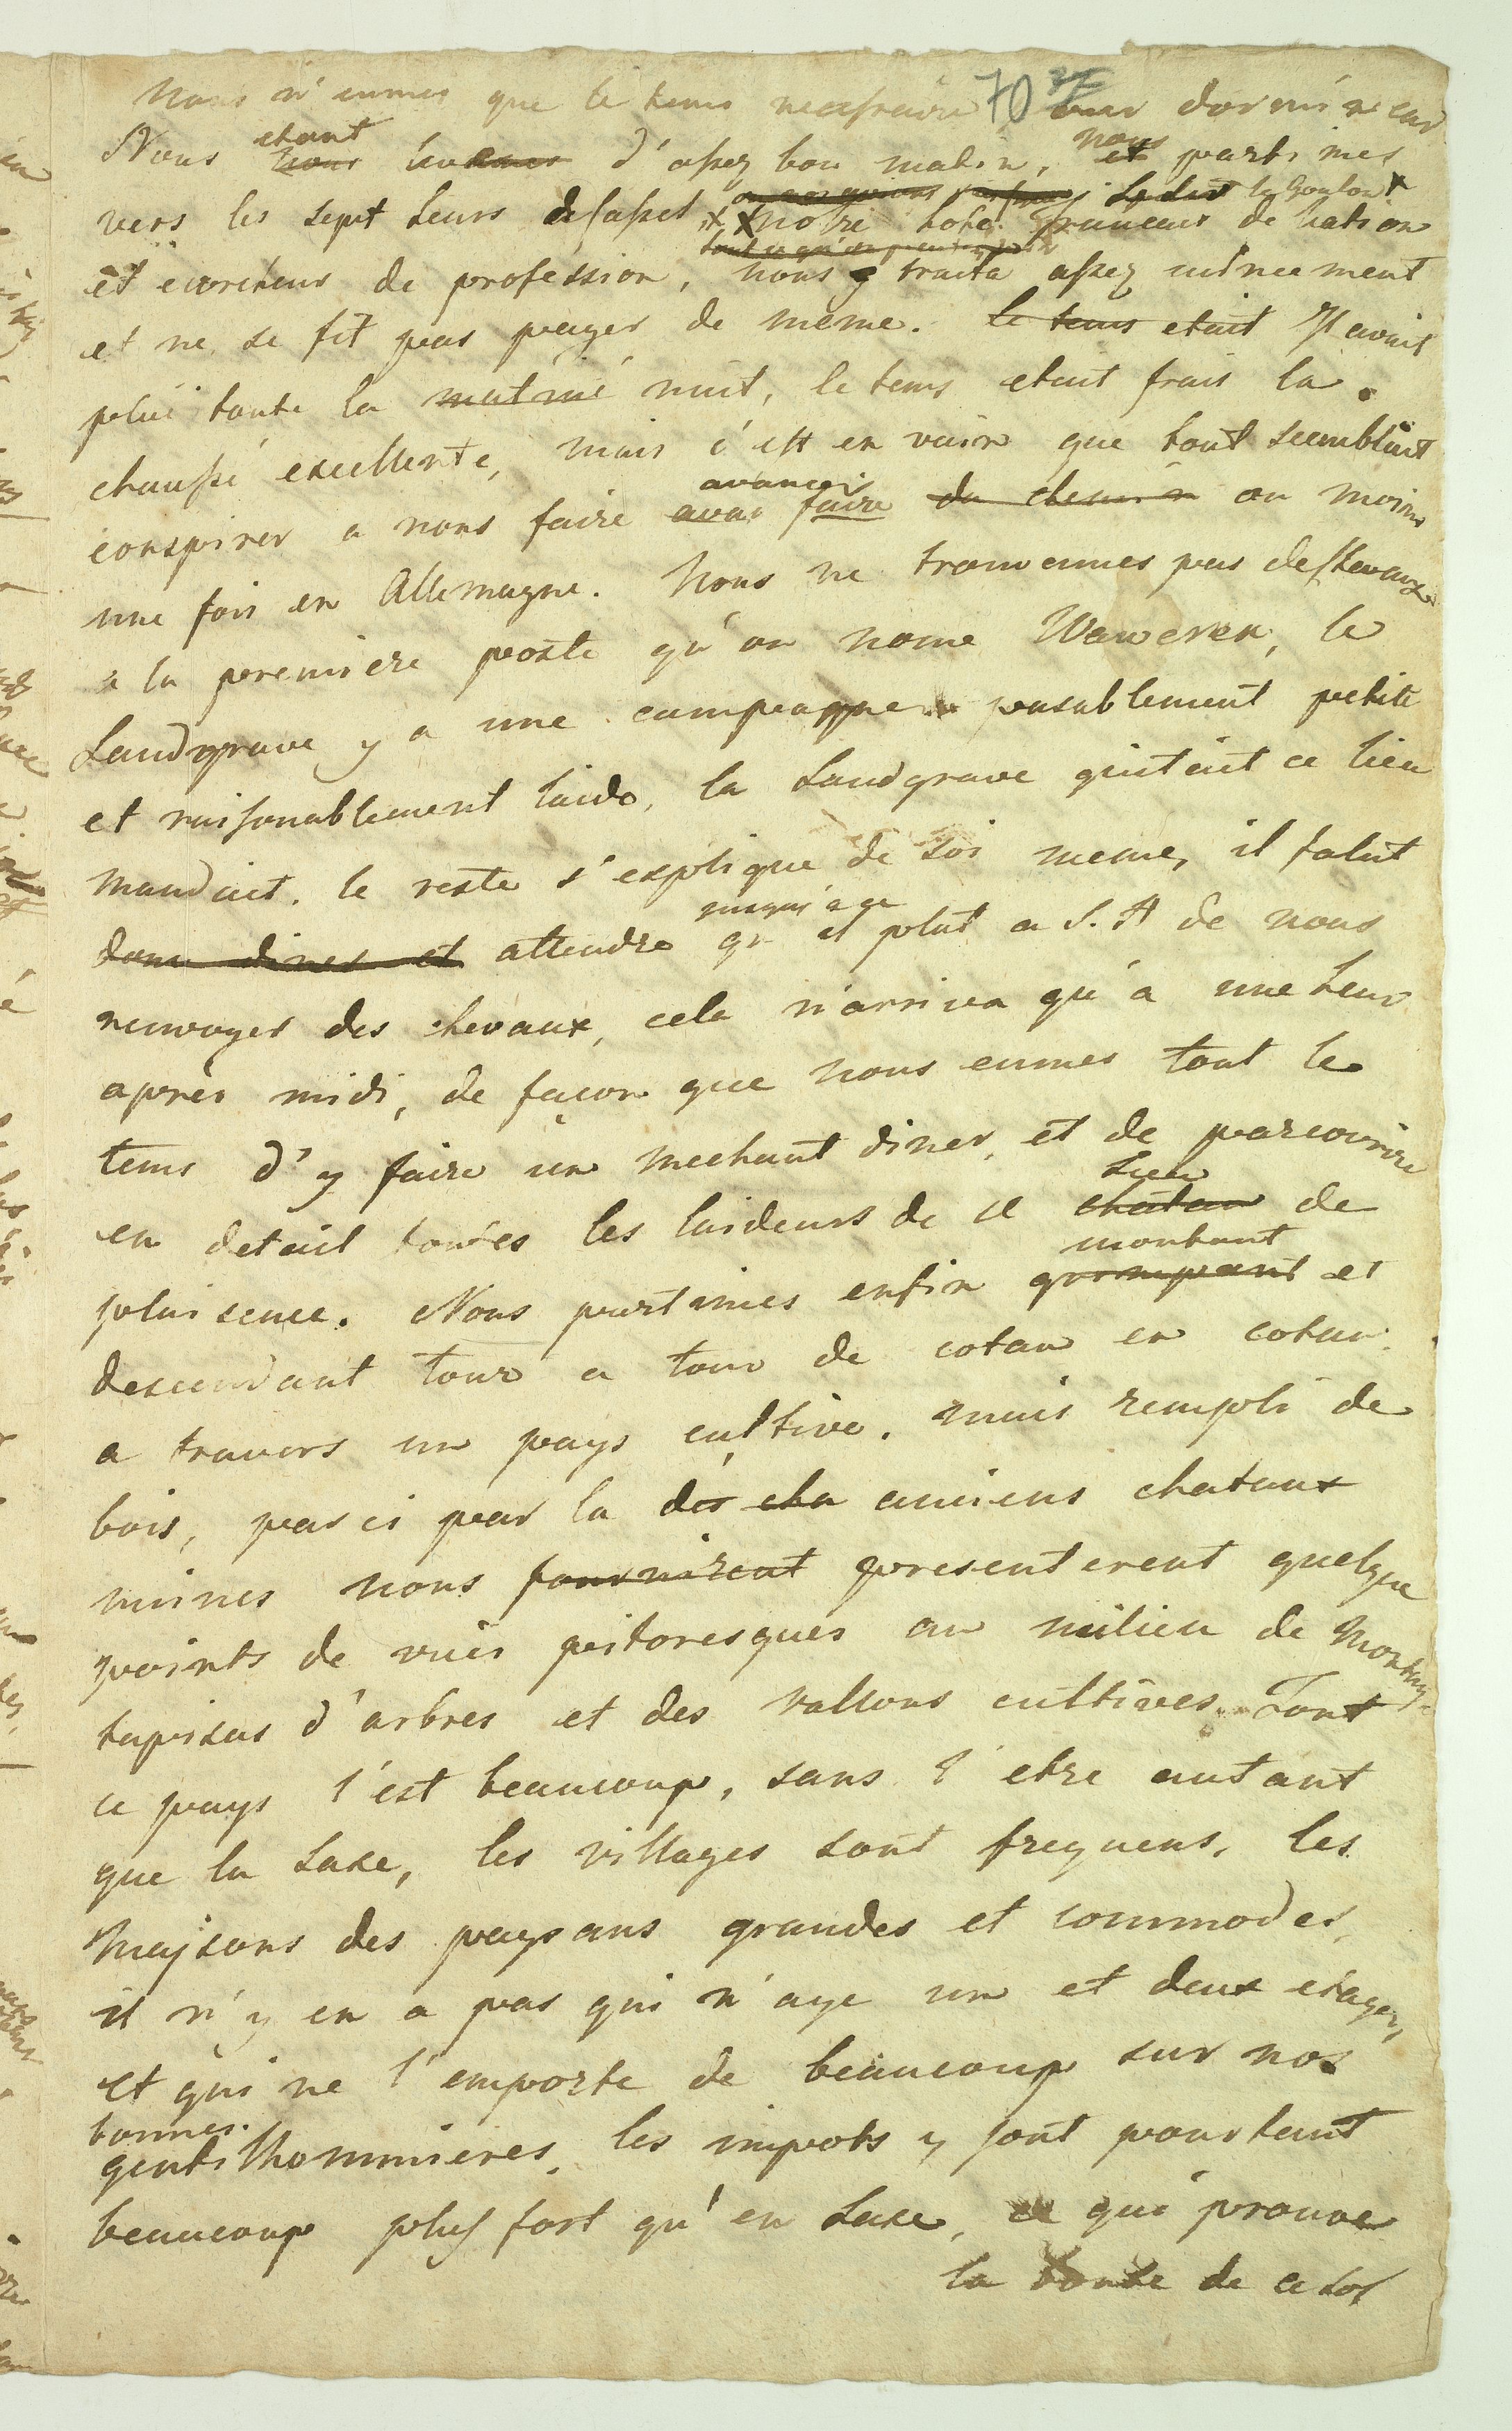 70
Nous n'eumes que le tems necessaire pour dormir car
Nous etant nous levames d'assez bon matin, nous et partimes
vers les sept heurs de Cassel, notre hote franceus de nation
et ecorcheur de profession, nous y traita assez mincement
et ne se fit pas payer de meme. le tems etait Il avait
plui toute la matiné nuit, le tems etait frais la
chaussé excellente, mais c'est en vain que tout seemblait
conspirer a nous faire avancer faire du chemin au moins
une fois en Allemagne. Nous ne trouvames pas de chevaux
a la premiere poste qu'on nome Waweren, le
Landgrave y a une campagne pasablement petite
et raisonablement laide, la Landgrave quitait ce lieu
maudait. le reste s'explique de soi meme, il falut
donc diner et attendre jusqu'a ce qu il plut a S. A de nous
renvoyer des chevaux, cela n'arriva qu'a une heur
apres midi, de façon que nous eumes tout le
tems d'y faire un mechant diner, et de parcourire
en detail toutes les laideurs de ce lieu chatau de
plaisence. Nous partimes enfin montant grimpant et
descendant tour a tour de cotau en cotau
a travers un pays cultive. mais rempli de
bois, par ci par la des cha anciens chataux
ruines nous fournirent presenterent quelque
points de vues pitoresques au milieu de montag-
tapisas d'arbres et des vallons cultives. Tout
ce pays l'est beaucoup, sans l'etre autant
que la Saxe, les villages sont frequens, les
maisons des paysans grandes et commodes,
il n'y en a pas qui n'aye un et deux etages,
et qui ne l'emporte de beaucoup sur nos
bonnes
gentilhommieres, les impots y sont pourtant
beaucoup plus fort qu'en Saxe, ce qui prouve
la bonte de ce sol